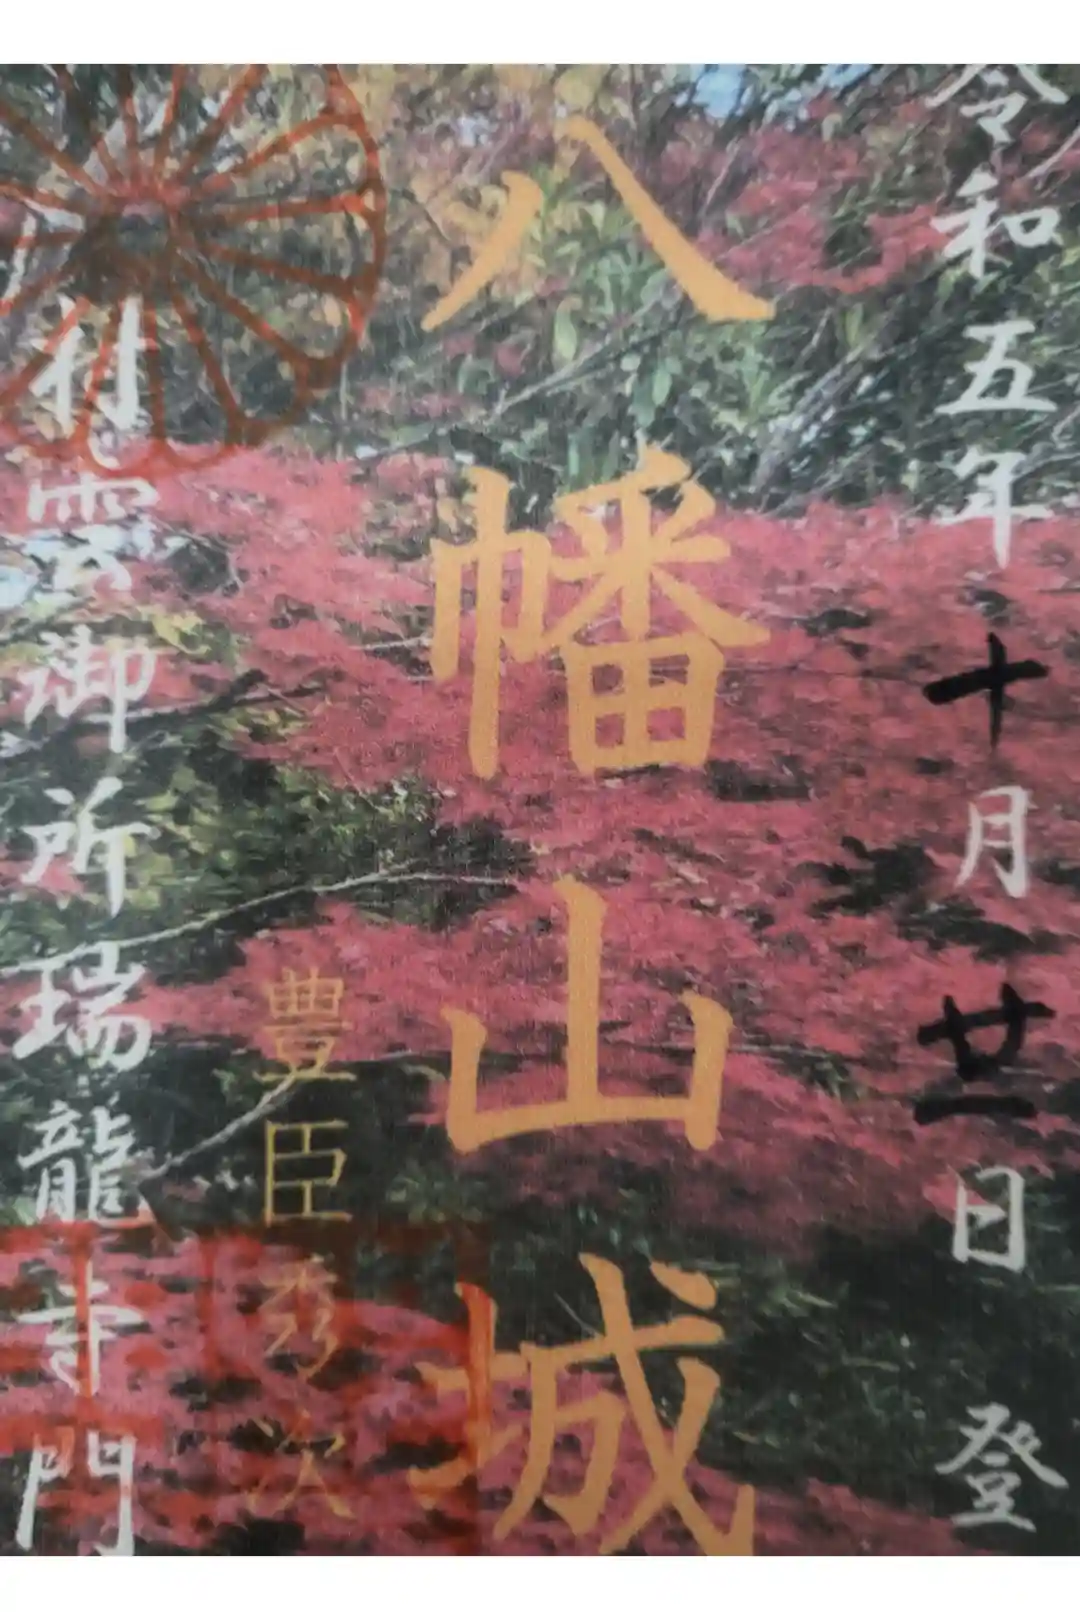 令和五年十月廿一日 登
八幡山城
豊臣秀次
村雲御所瑞龍寺門